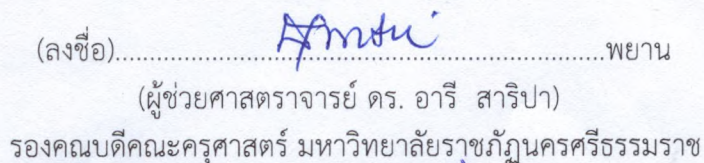 (ลงชื่อ)......................................................................พยาน
(ผู้ช่วยศาสตราจารย์ ดร. อารี  สาริปา)
รองคณบดีคณะครุศาสตร์ มหาวิทยาลัยราชภัฏนครศรีธรรมราช